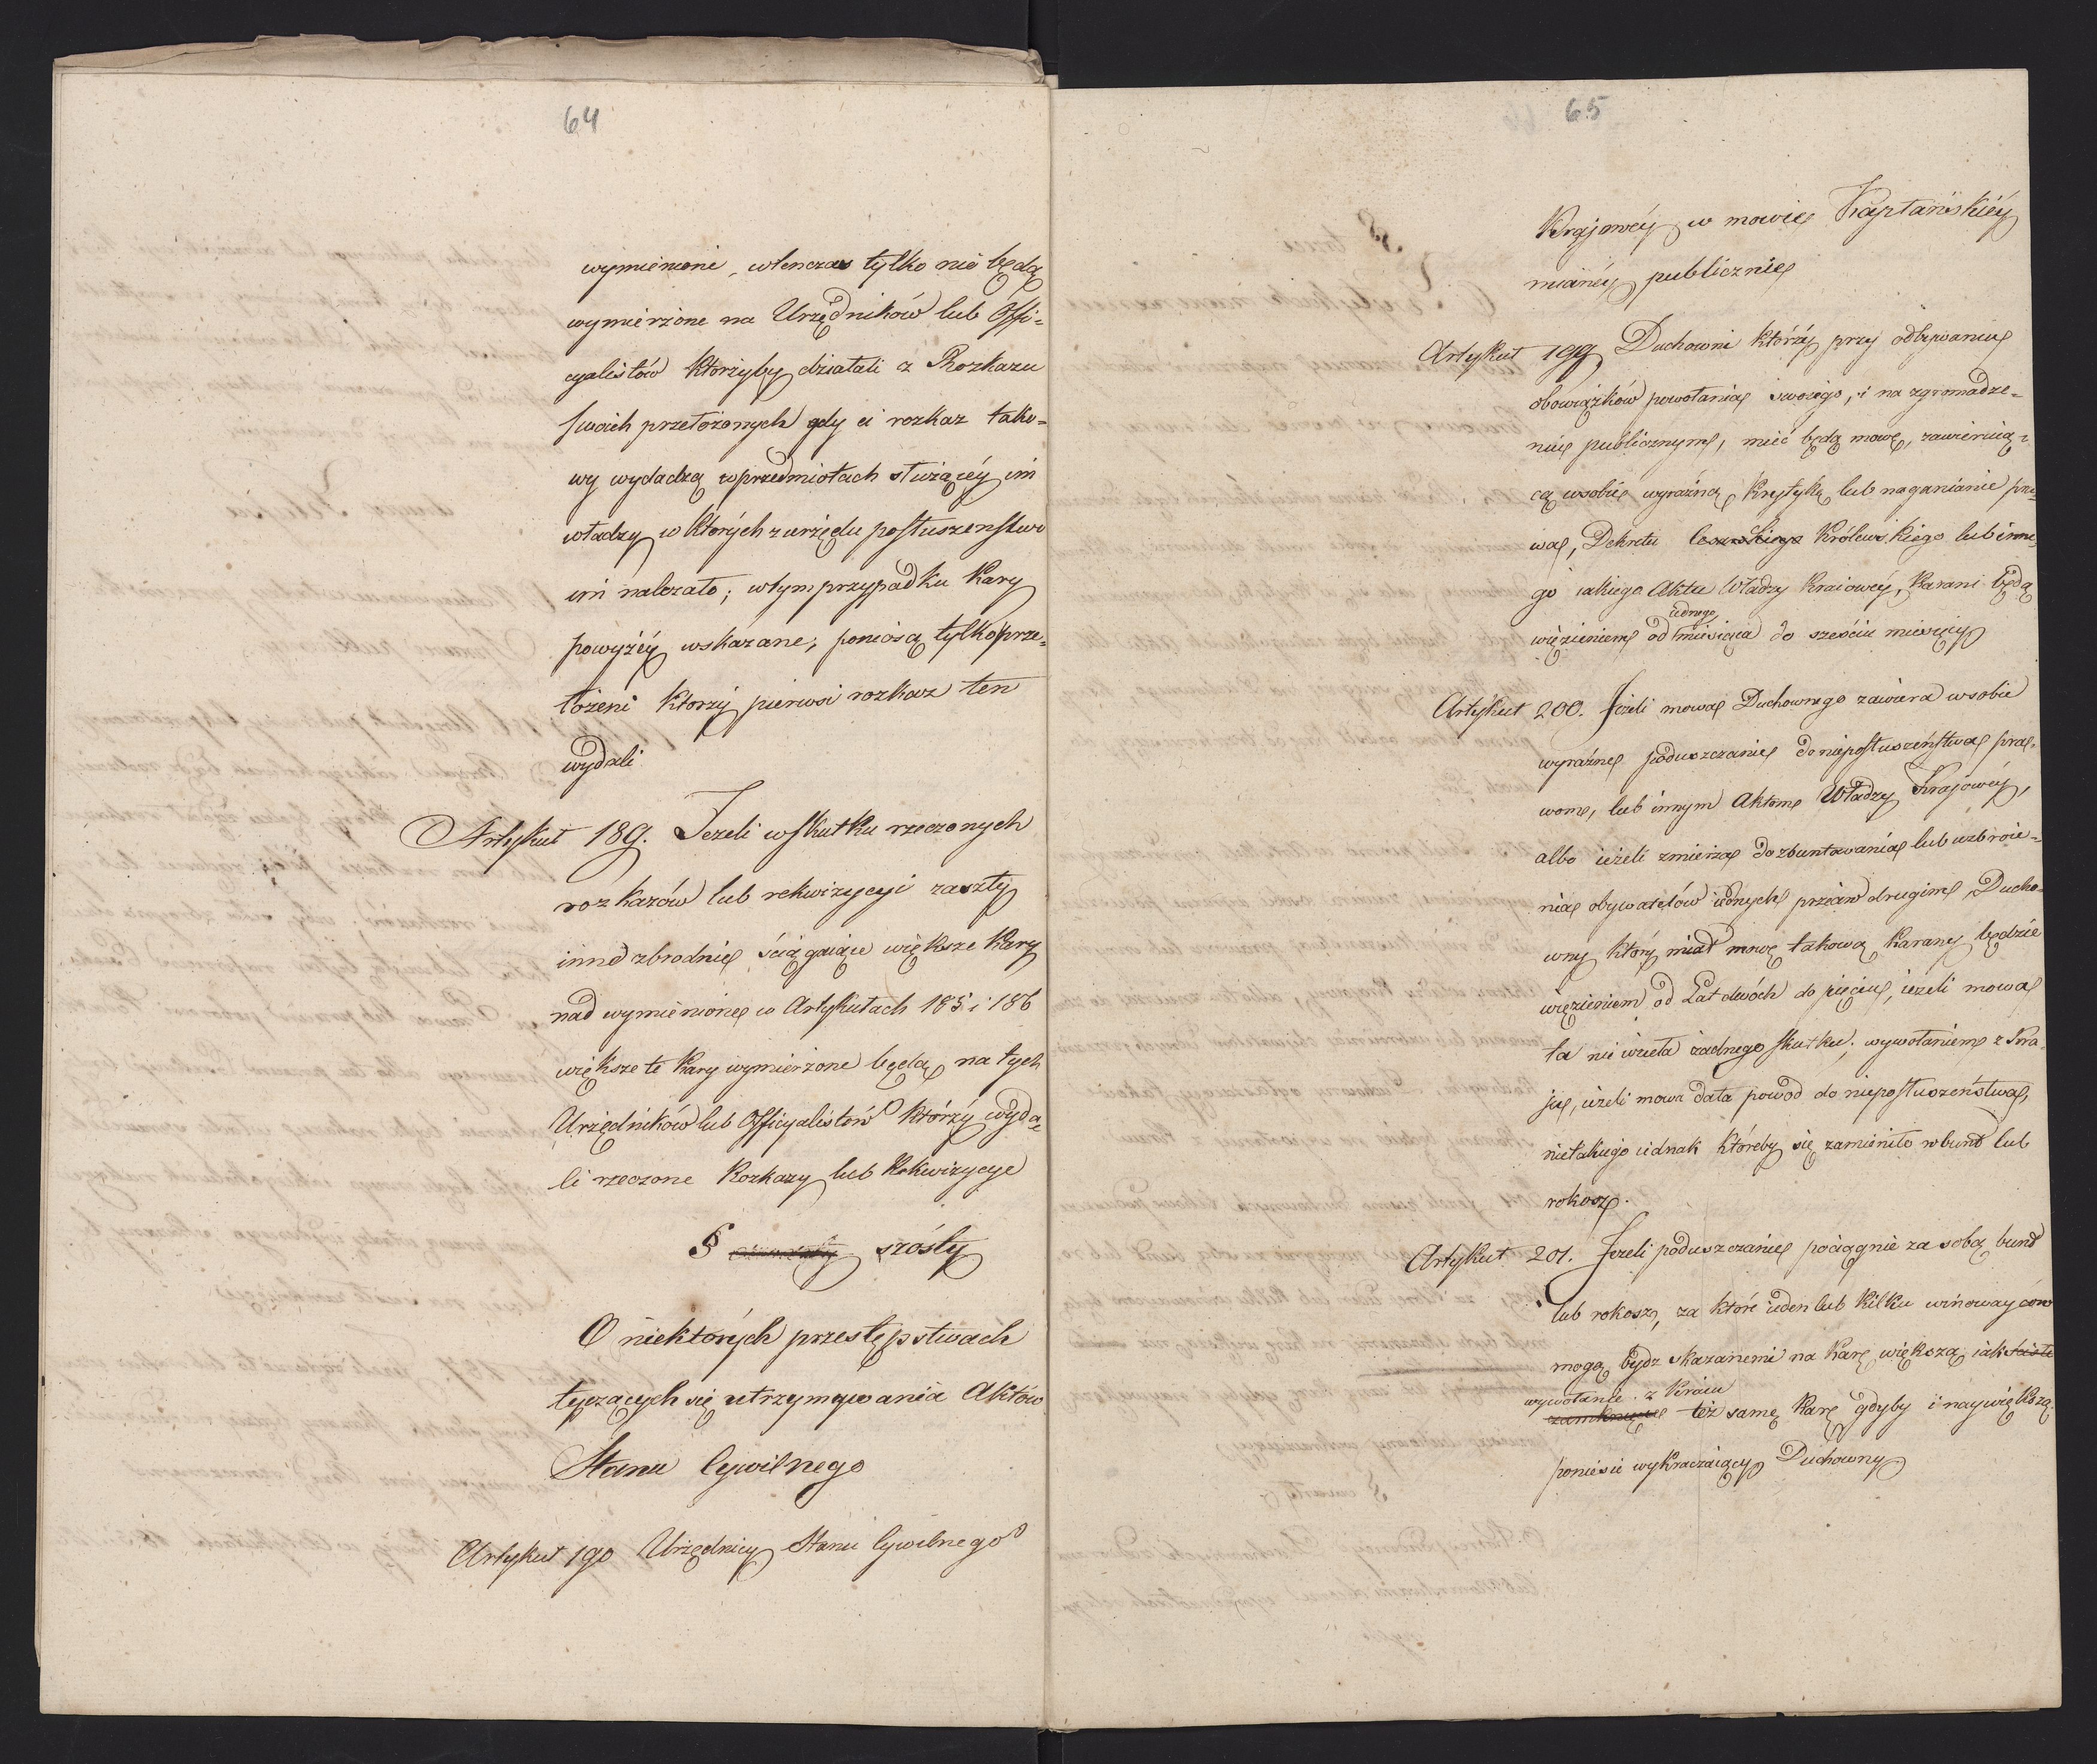 64
wymienione, wtenczas tylko nie będą
wymierzone na Urzędników lub Offi=
cyalistów którzyby działali z Rozkazu
swoich przełożonych gdy ci rozkaz tako=
wy wydadzą w przedmiotach służącéy im
władzy w których z urzędu posłuszenstwo
im należało; w tym przypadku kary
powyżéy wskazane, poniosą tylko prze=
łożeni którzy pierwsi rozkaz ten
wydali
Artykuł 189. Jeżeli w skutku rzeczonych
rozkazów lub rekwizycyi zaszły
inne zbrodnie ściągaiące większe kary
nad wymienione w Artykułach 185 i 186
większe te kary wymierzone będą na tych
Urzędników lub Officyalistów którzy wyda=
li rzeczone Rozkazy lub Rekwizycye
§ szósty
O niektórych przestępstwach
tyczących się utrzymywania Aktów
Stanu Cywilnego
Artykuł 190 Urzędnicy Stanu Cywilnego
65
Krajowéy w mowie Kapłańskiéy
mianéy publicznie
Artykuł 199 Duchowni którzy przy odbywaniu
obowiązków powołania swoiego, i na zgromadze=
niu publicznym, mieć będą mowę, zawieraią=
cą w sobie wyraźną krytykę lub naganianie pra=
wa, Dekretu Cesarskiego Królewskiego lub inne=
go iakiego Aktu Władzy Kraiowéy, karani będą
iednego
więzieniem od miesiąca do sześciu miesięcy
Artykuł 200. Jeżeli mowa Duchownego zawiera w sobie
wyraźne poduszczanie do nieposłuszeństwa pra=
wom, lub innym Aktom Władzy Krajowéy,
albo ieżeli zmierza do zbuntowania lub uzbroie=
nia obywatelów iednych przeciw drugim, Ducho=
wny który miał mowę takową karany będzie
więzieniem od Lat dwóch do pięciu, ieżeli mowa
ta nie wzieła żadnego skutku; wywołaniem z Kra=
ju, ieżeli mowa dała powód do nieposłuszeństwa,
nietakiego iednak któreby się zamieniło w bunt lub
rokosz.
Artykuł 201. Jeżeli poduszczanie pociągnie za sobą bunt
lub rokosz, za które ieden lub kilku winowayców
mogą bydz skazanemi na karę większą iak ścisłe
wywołanie z Kraiu
zamknięcie też samę karę gdyby i naywiększą
poniesie wykraczaiący Duchowny